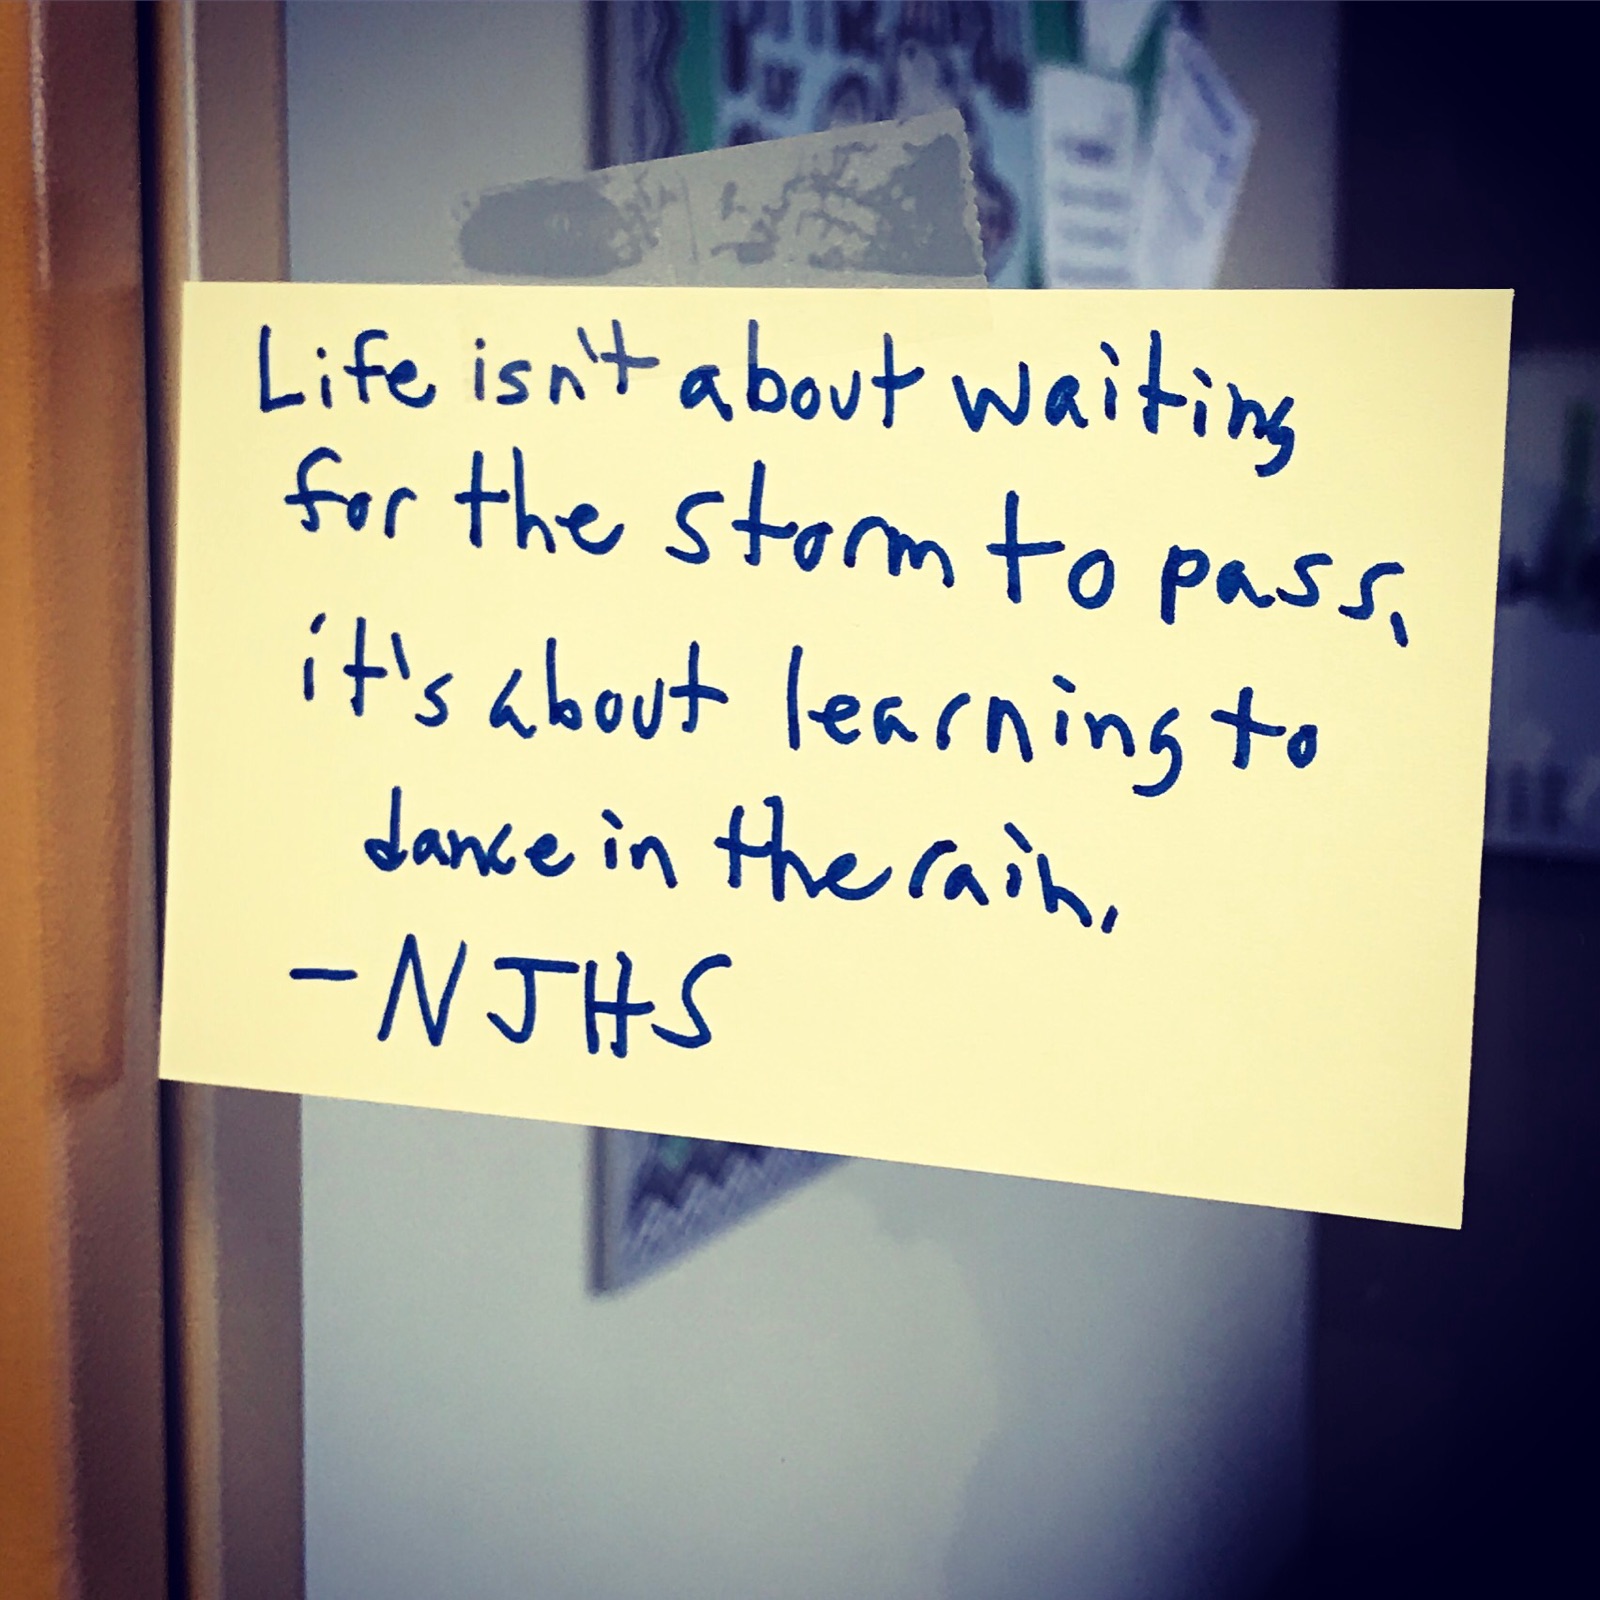 Life isn't about waiting
for the storm to pass,
it's about learning to
dance in the rain.
-NJHS